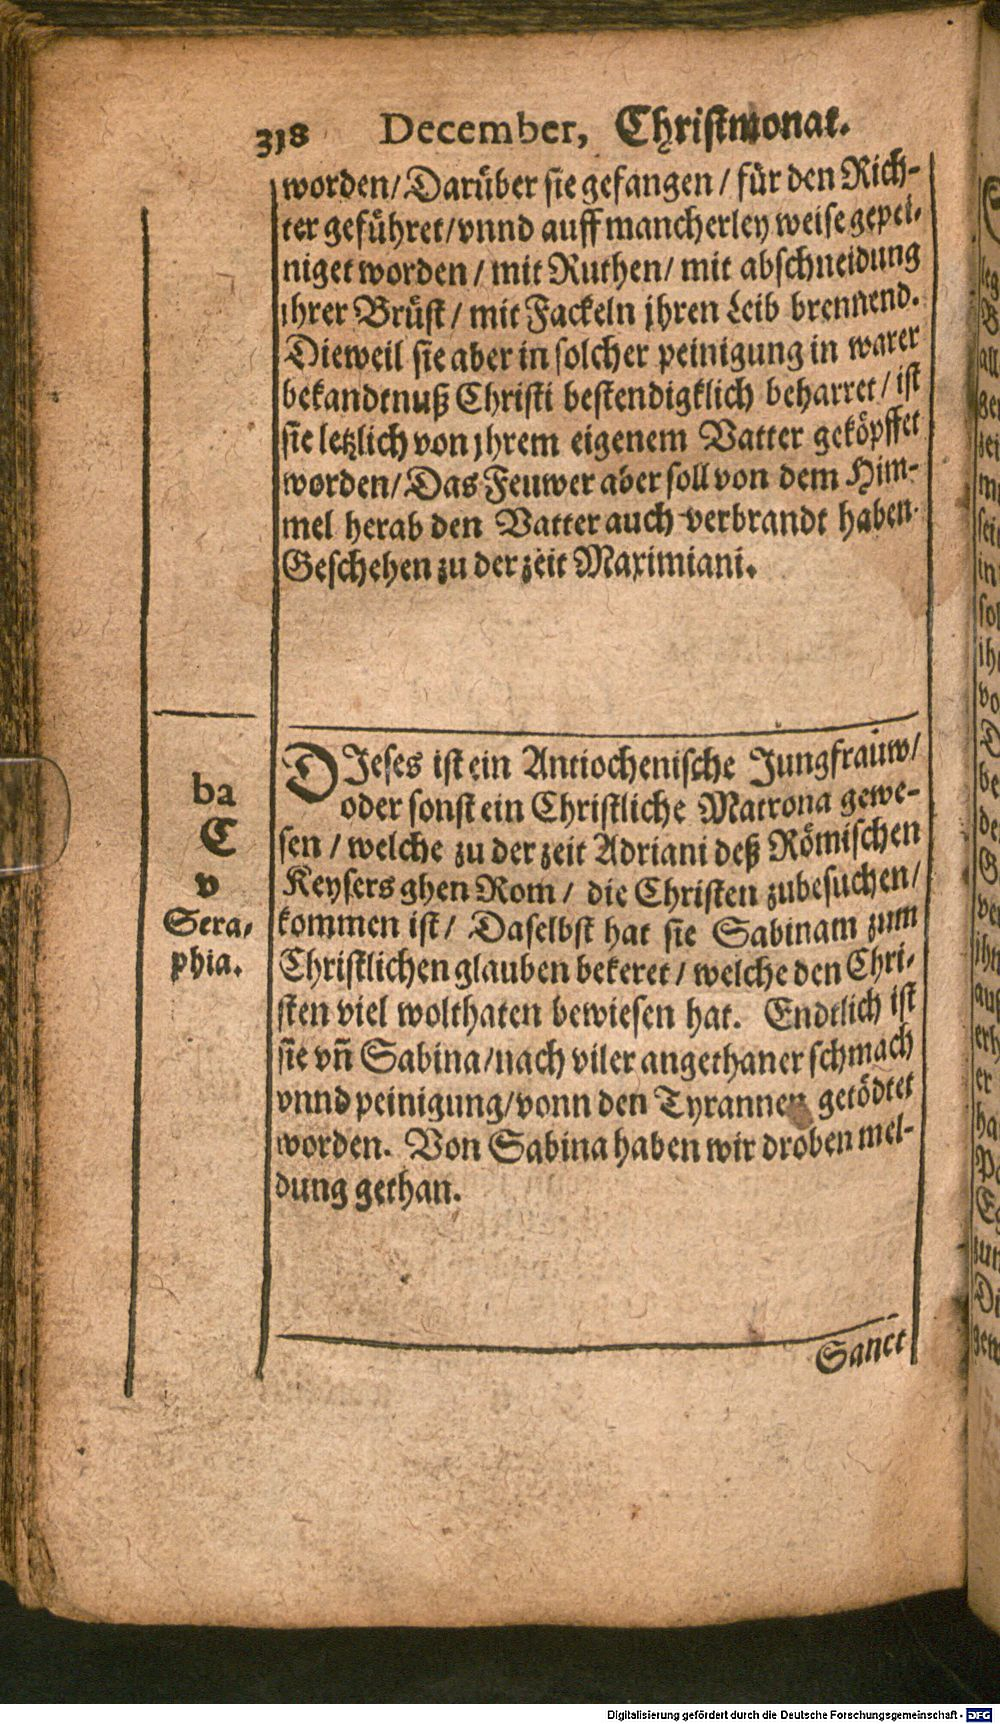 318 December, Christmonat.
worden/ Darüber sie gefangen / für den Rich-
ter geführet/vnnd auff mancherley weise gepei-
niget worden / mit Ruthen/ mit abschneidung
ihrer Brüst / mit Fackeln jhren Leib brennend.
Dieweil sie aber in solcher peinigung in warer
bekandtnuß Christi bestendigklich beharret/ ist
sie letzlich von jhrem eigenem Vatter geköpffet
worden/ Das Feuwer aber soll von dem Him-
mel herab den Vatter auch verbrandt haben.
Geschehen zu der zeit Maximiani.
ba
C
v
Sera-
phia.
DIeses ist ein Antiochenische Jungfrauw/
oder sonst ein Christliche Matrona gewe-
sen / welche zu der zeit Adriani deß Römischen
Keysers ghen Rom / die Christen zubesuchen/
kommen ist/ Daselbst hat sie Sabinam zum
Christlichen glauben bekeret / welche den Chri-
sten viel wolthaten bewiesen hat. Endtlich ist
sie vñ Sabina/nach viler angethaner schmach
vnnd peinigung/vonn den Tyrannen getödtet
worden. Von Sabina haben wir droben mel-
dung gethan.
Sanct
Digitalisierung gefördert durch die Deutsche Forschungsgemeinschaft - DFG